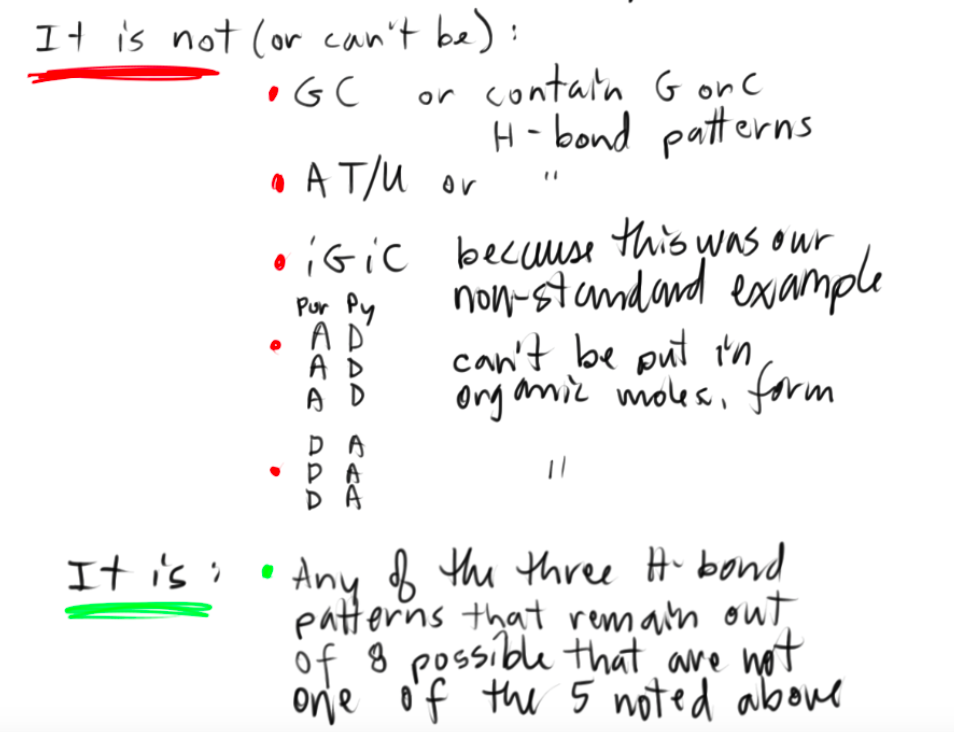 It is not (or can't be):
• GC or contain G or C
H-bond patterns
• AT/U or "
• iGiC because this was our
non-standard example
Pur Py
• A D can't be put in
A D organic molec. form
A D
D A
• D A "
D A
It is: • Any of the three H-bond
patterns that remain out
of 8 possible that are not
one of the 5 noted above